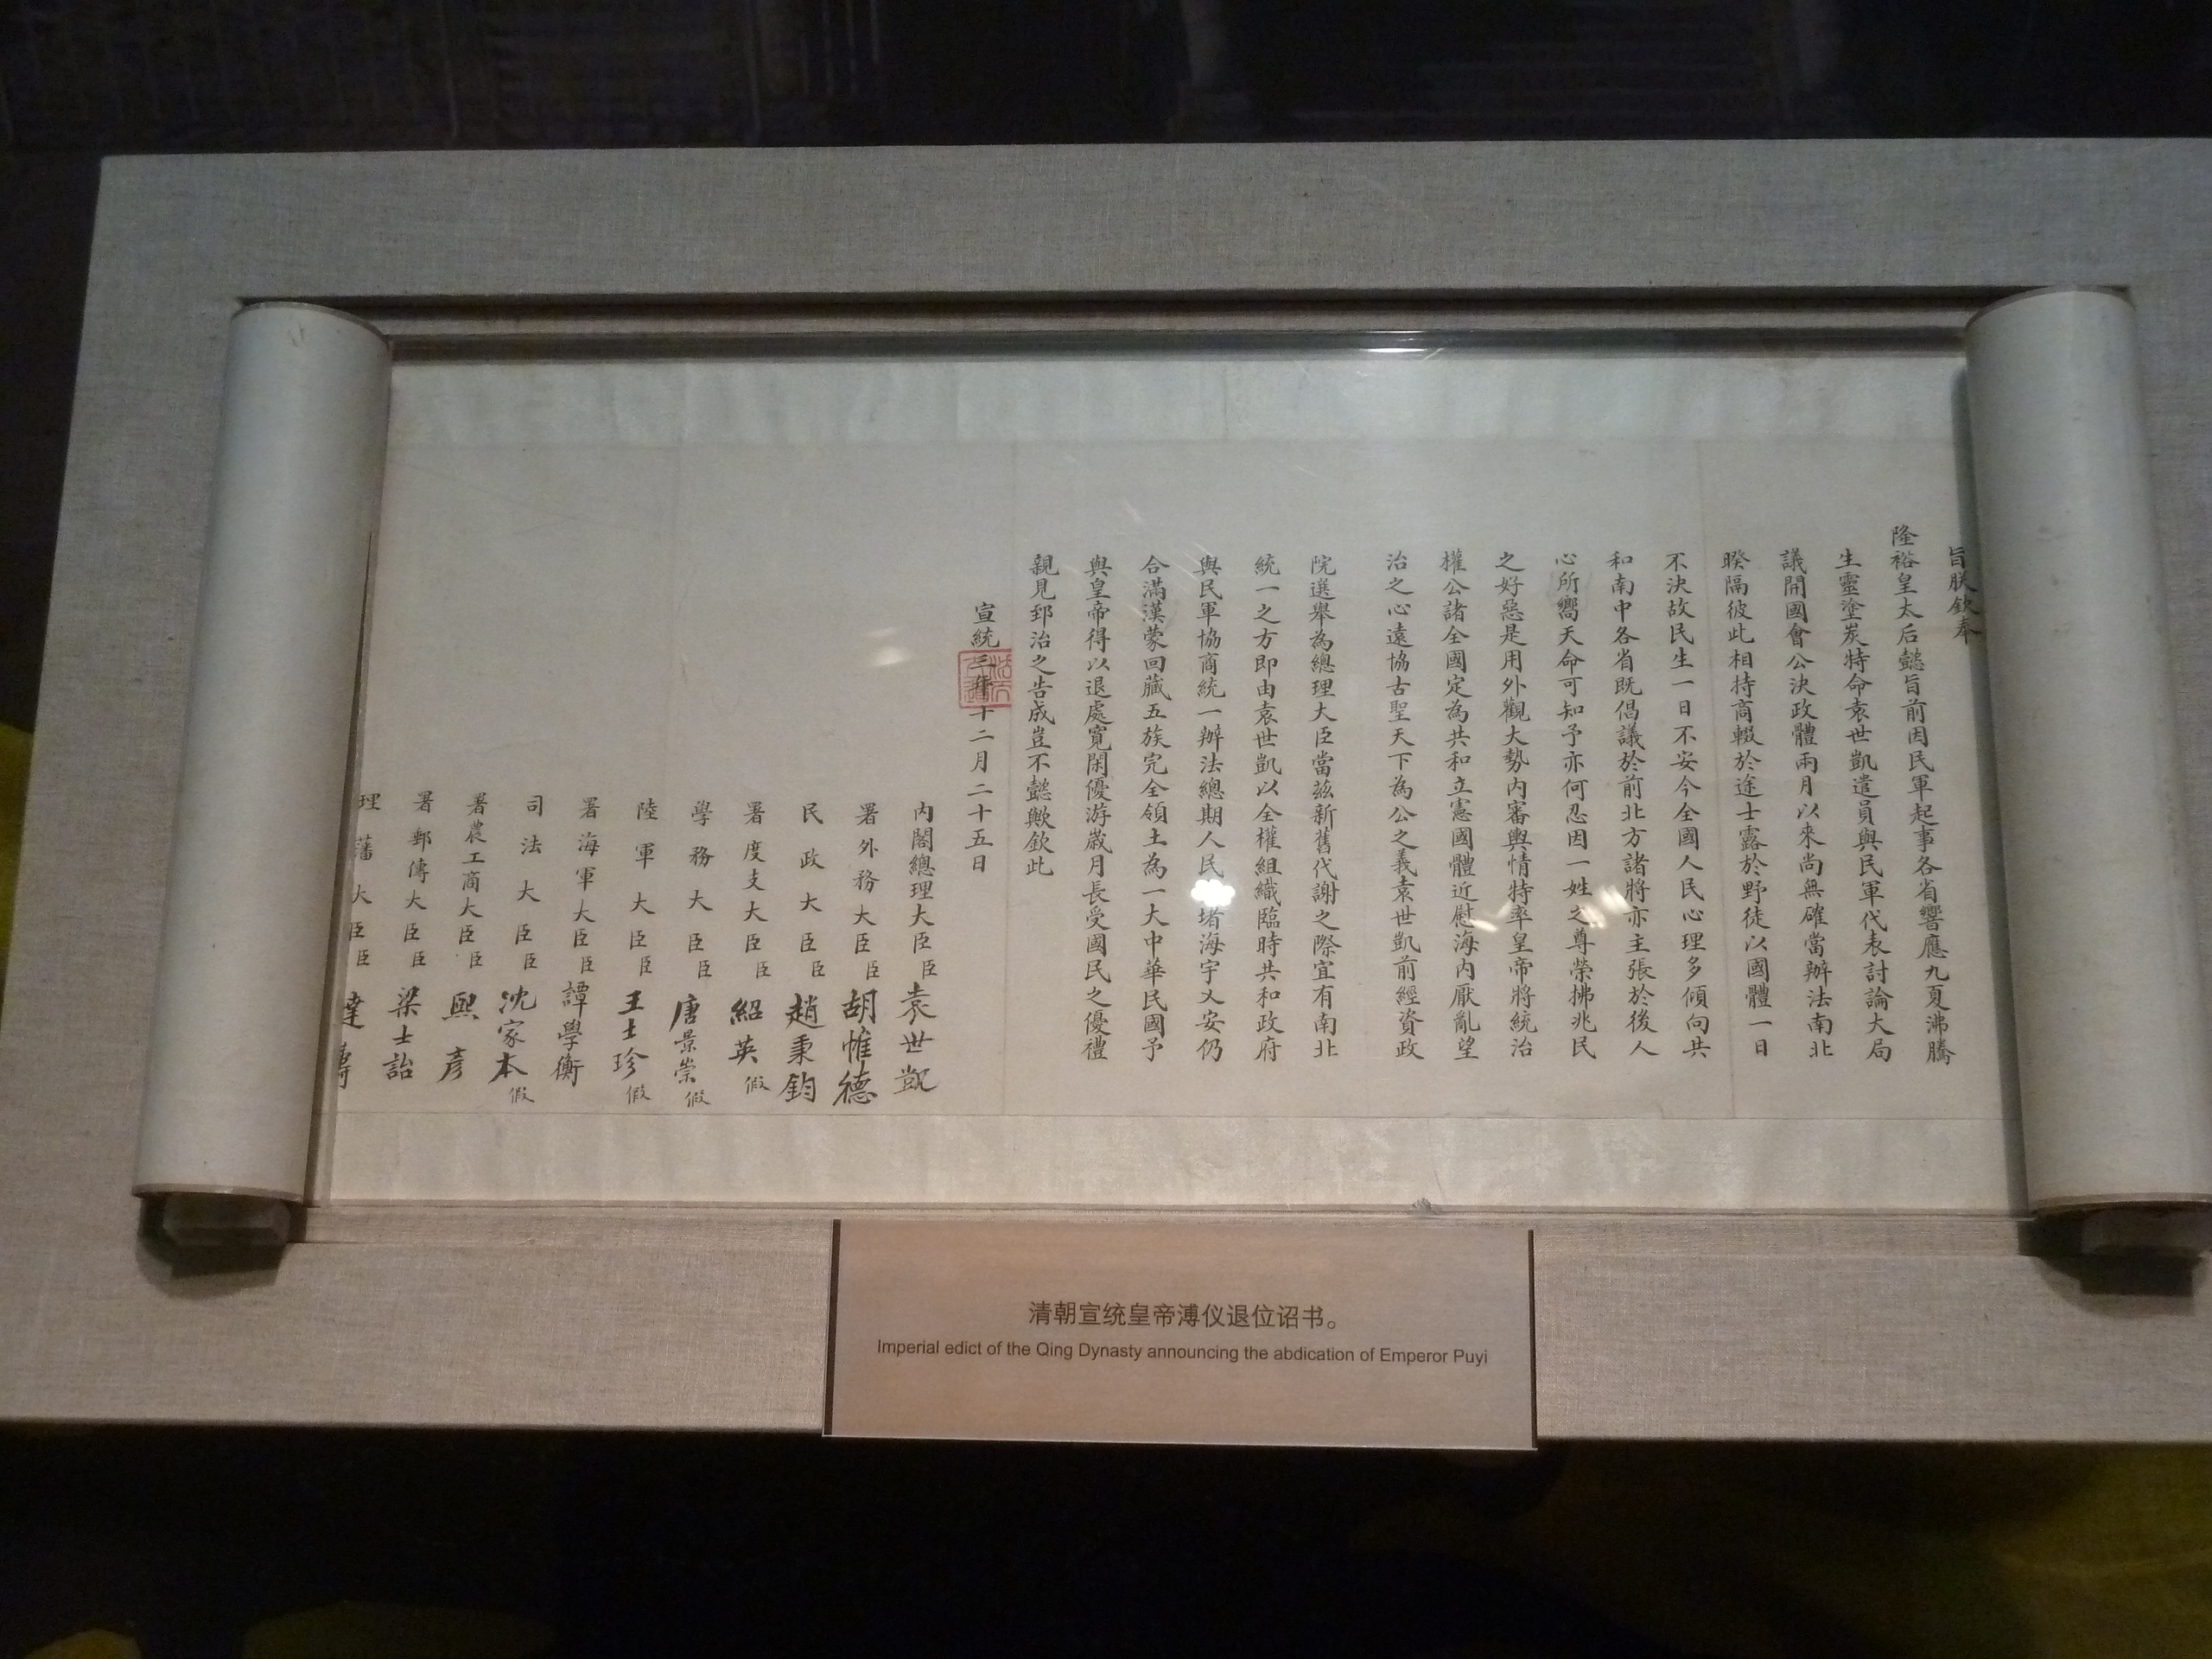 旨朕欽奉
隆裕皇太后懿旨前因民軍起事各省響應九夏沸騰
生靈塗炭特命袁世凱遣員與民軍代表討論大局
議開國會公決政體兩月以來尚無確當辦法南北
暌隔彼此相持商輟於途士露於野徒以國體一日
不決故民生一日不安今全國人民心理多傾向共
和南中各省既倡議於前北方諸將亦主張於後人
心所嚮天命可知予亦何忍因一姓之尊榮拂兆民
之好惡是用外觀大勢內審輿情特率皇帝將統治
權公諸全國定為共和立憲國體近慰海內厭亂望
治之心遠協古聖天下為公之義袁世凱前經資政
院選舉為總理大臣當茲新舊代謝之際宜有南北
統一之方即由袁世凱以全權組織臨時共和政府
與民軍協商統一辦法總期人民堵海宇乂安仍
合滿漢蒙回藏五族完全領土為一大中華民國予
與皇帝得以退處寬閑優游歲月長受國民之優禮
親見郅治之告成豈不懿歟欽此
宣統三年十二月二十五日
內閣總理大臣臣袁世凱
署外務大臣臣胡惟德
民政大臣臣趙秉鈞
署度支大臣臣紹英假
學務大臣臣唐景崇假
陸軍大臣臣王士珍假
署海軍大臣臣譚學衡
司法大臣臣沈家本假
署農工商大臣臣熙彥
署郵傳大臣臣梁士詒
理藩大臣臣達壽
清朝宣统皇帝溥仪退位诏书。
Imperial edict of the Qing Dynasty announcing the abdication of Emperor Puyi